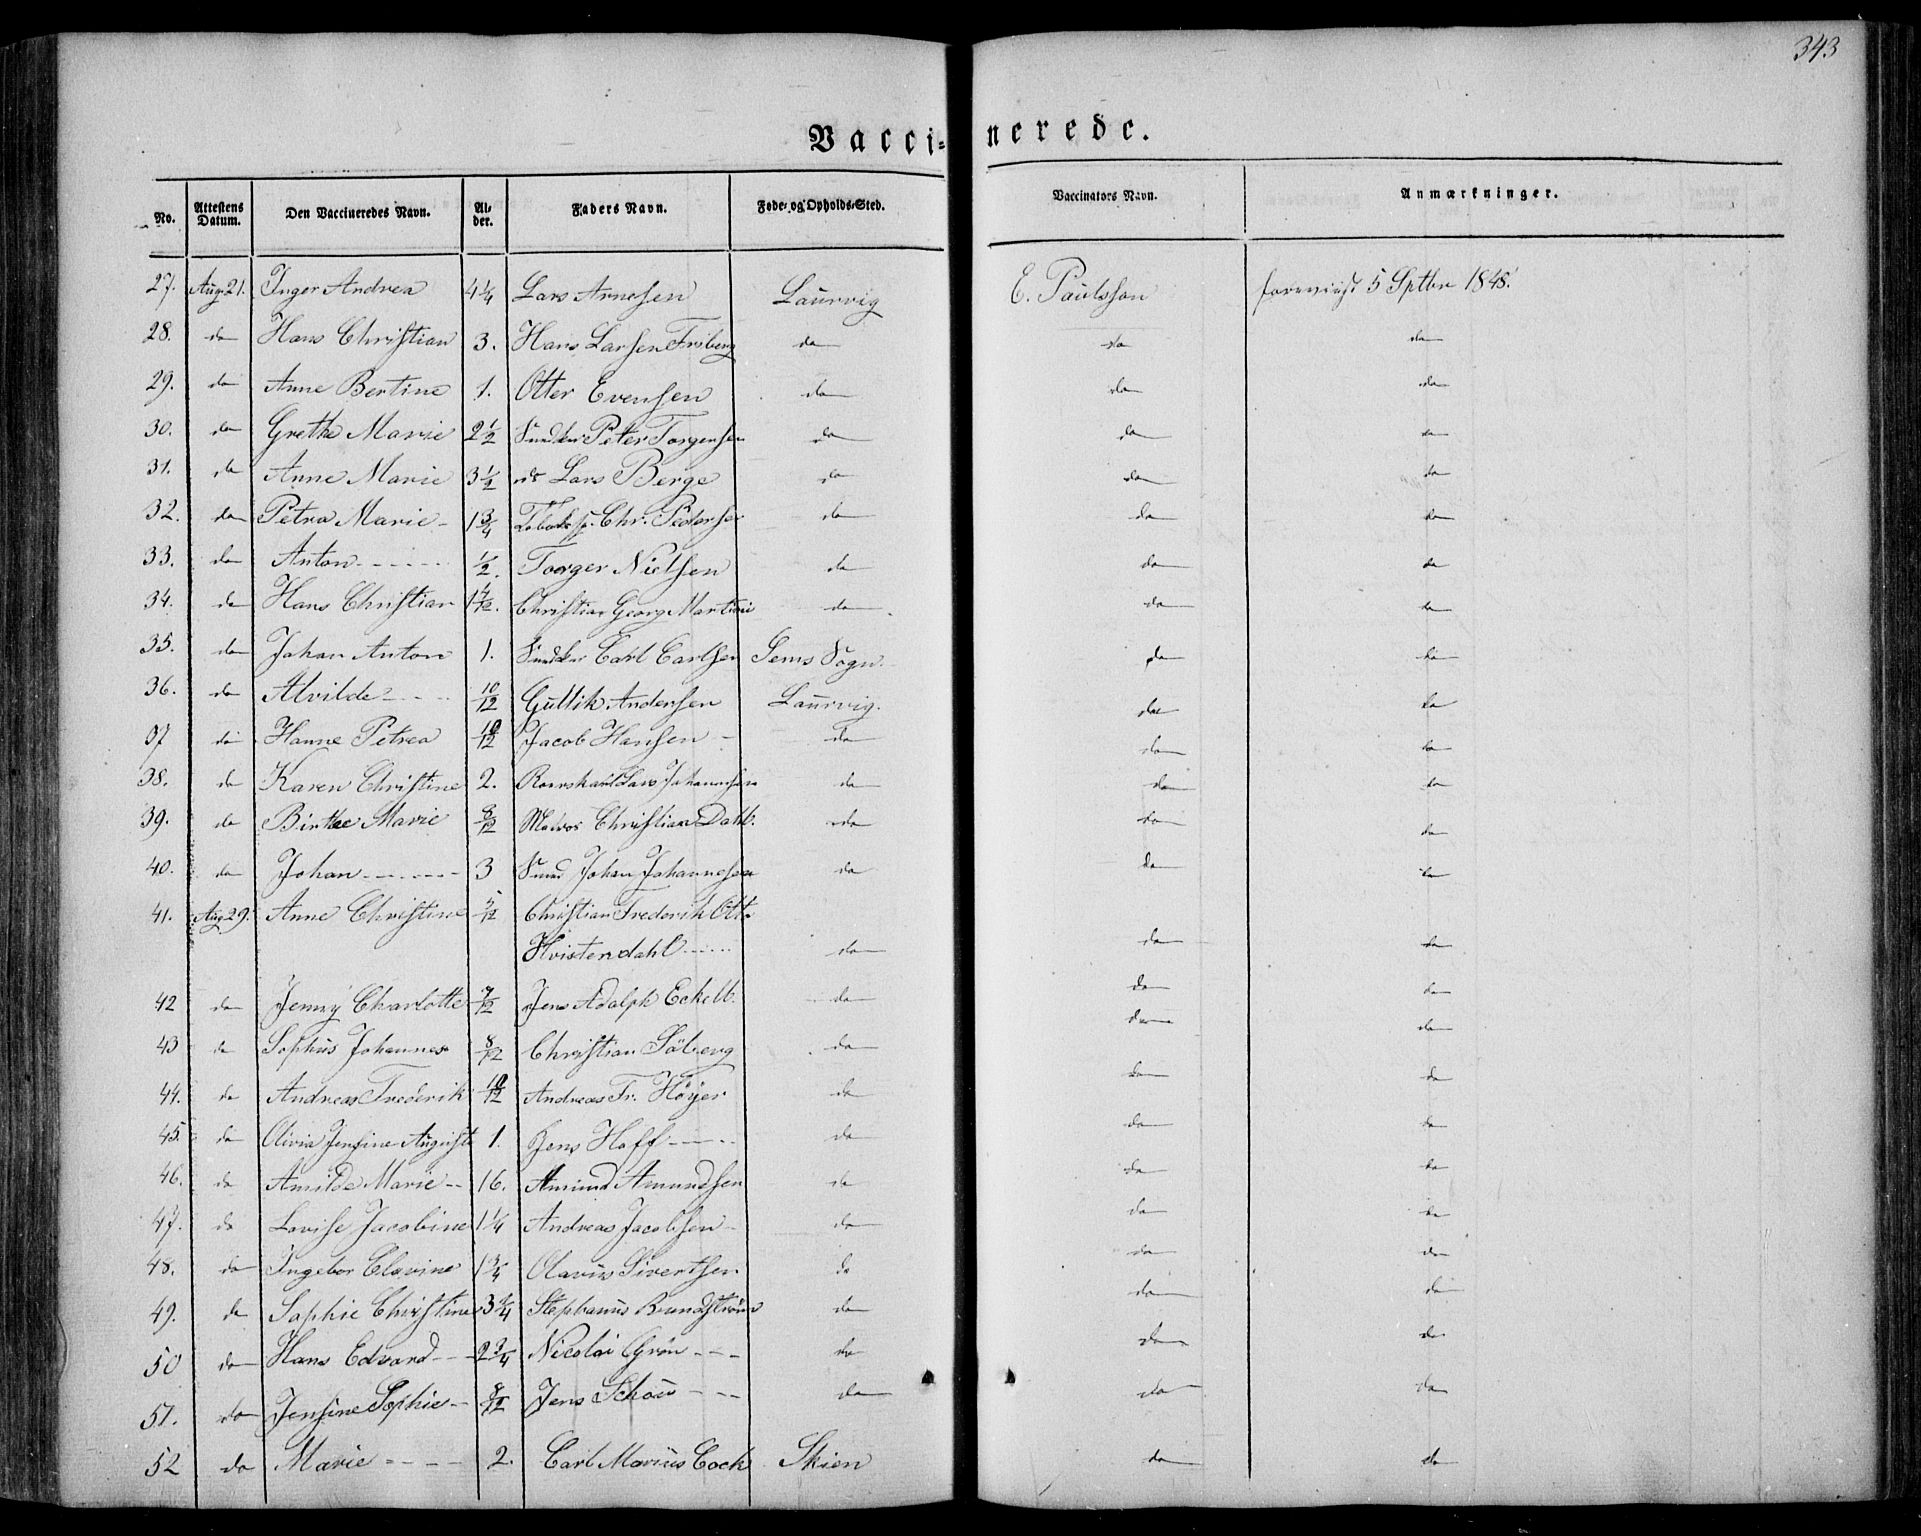 343
Vacci-nerede.
No. Attestens Datum. Den Vaccineredes Navn. Al-der. Faders Navn. Føde- og Opholds-Sted. Vaccinators Navn. Anmærkninger.
27. Aug 21. Inger Andrea 4 1/4 Lars Arnesen Laurvig E. Paulsson forevist 5 Sptbr 1848.
28. do Hans Christian 3. Hans Larsen Friberg do do do
29. do Anne Bertine 1. Otter Evensen do do do
30. do Grethe Marie 2 1/2 Peter Torgensen do do do
31. do Anne Marie 3 1/2 do Lars Berge do do do
32. do Petra Marie 1 3/4 Chr. Pedersen do do do
33. do Anton 1/2. Torger Nielsen do do do
34. do Hans Christian 1 7/12. Christian Georg Martini do do do
35. do Johan Anton 1. Carl Carlsen Sems Sogn do do
36. do Alvilde 10/12 Gullik Andersen Laurvig. do do
37 do Hanne Petrea 10/12 Jacob Hansen do do do
38. do Karen Christine 2. Lars Johannesen do do do
39. do Birthe Marie 8/12 Matros Christian Dahl. do do do
40. do Johan 3 Johan Johannesen do do do
41. Aug 29. Anne Christine 5/12 Christian Frederik Otto
Hvistendahl do do do
42 do Jenny Charlotte 7/12 Jens Adolph Eckelb. do do do
43 do Sophus Johannes 8/12 Christian Söberg do do do
44. do Andreas Frederik 10/12 Andreas Fr. Höyer do do do
45. do Olivia Jensine Auguste 1. Jens Hoff do do do
46. do Amilde Marie 16. Amund Amundsen do do do
47. do Lovise Jacobine 1 1/4 Andreas Jacobsen do do do
48. do Ingebor Clavine 1 3/4 Olavus Sivertsen do do do
49. do Sophie Christine 3 3/4 Stephanus Brundström do do do
50 do Hans Edvard 2 3/4 Nicolai Grön do do do
51. do Jensine Sophie 8/12 Jens Schou do do do
52 do Marie 2. Carl Marius Cock Skien do do